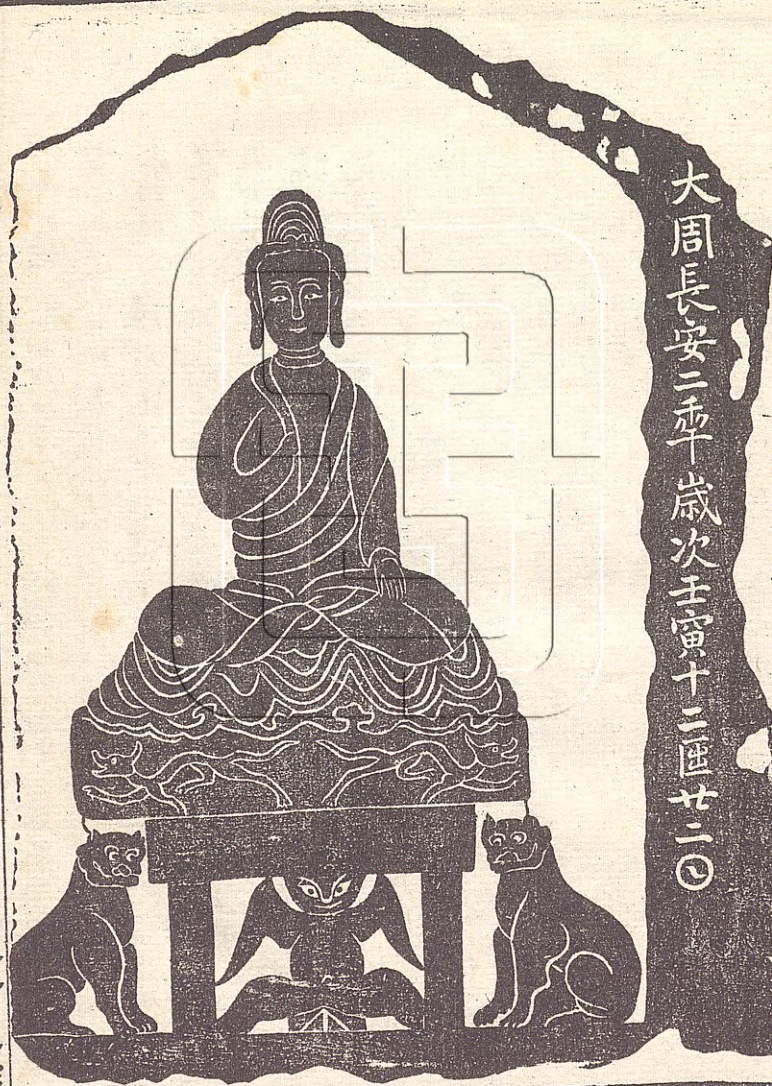 大周長安二秊歲次壬寅十二𠥱廿二𡆠